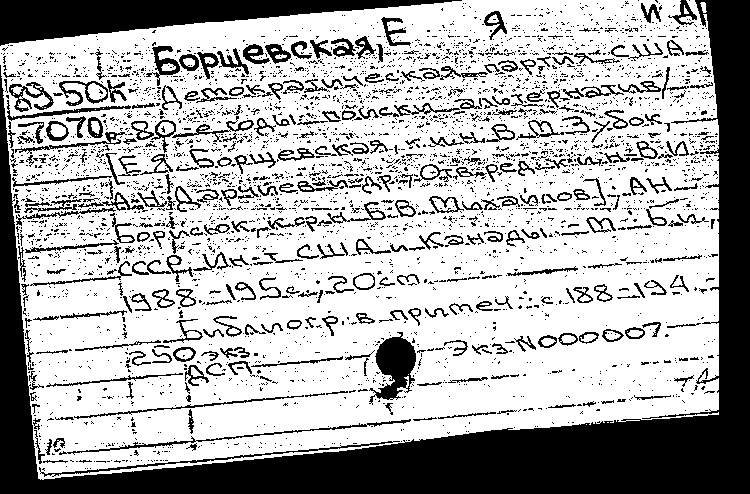 Борщевская, Е Я и др
89-50к Демократическая партия США
7070 в 80-е годы: поиски альтернатив /
[Е Я Борщевская, к.и.н. В. М.
А.Н. Дарчиев и др.; Отв. ред. к.и.н. В.И
Борисюк, Б.В. Михайлов]; АН
СССР, Ин-т США и Канады. - М.: Б.и.,
1988. - 195 с.; 20 см.
Библиогр. в примеч.: с. 188-194. -
250 экз. Экз N000007.
ДСП.
ТА
10